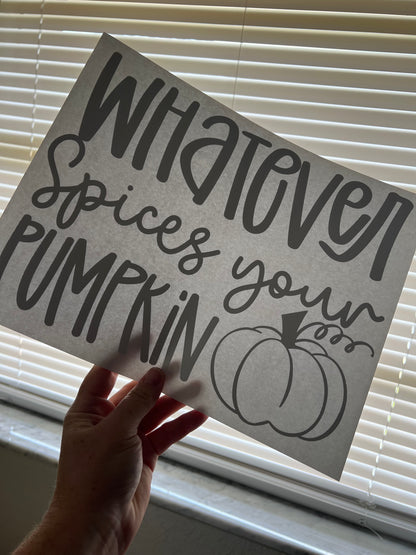 WHATEVER
Spices your
PUMPKIN